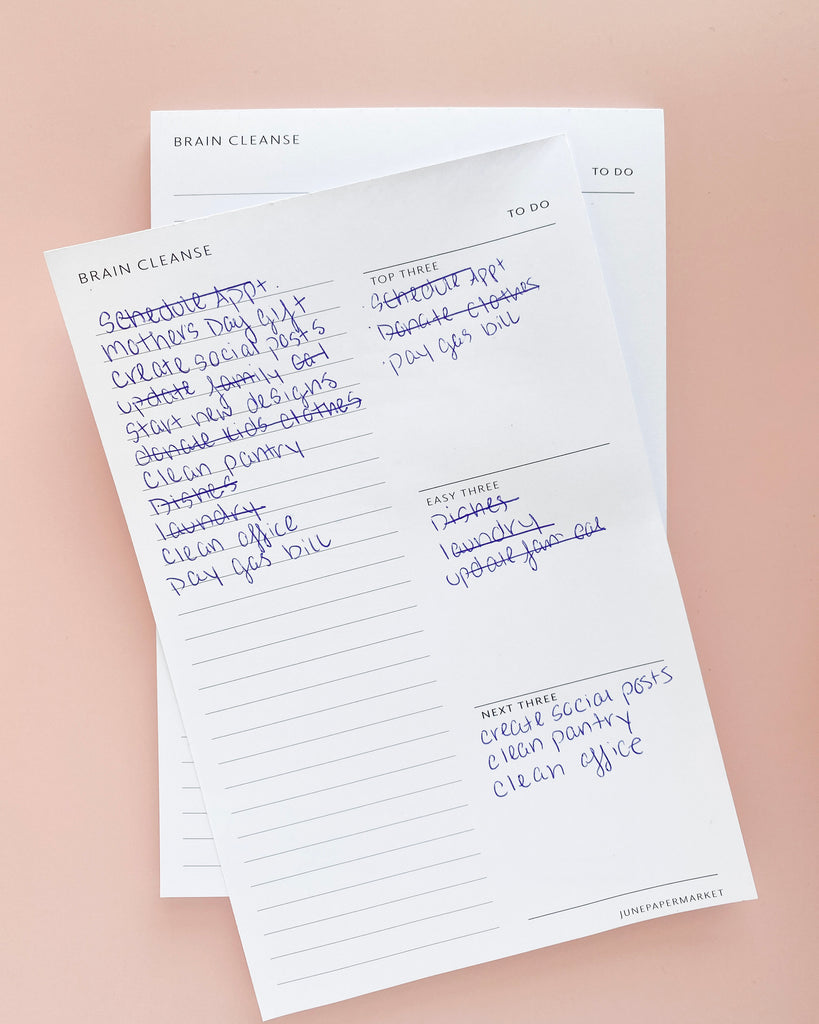 BRAIN CLEANSE
TO DO
BRAIN CLEANSE
TO DO
schedule Appt.
mothers Day gift
create social posts
update family cal
start new designs
donate kids clothes
clean pantry
Dishes
laundry
clean office
pay gas bill
TOP THREE
· schedule Appt
· Donate clothes
· pay gas bill
EASY THREE
Dishes
laundry
update fam cal
NEXT THREE
create social posts
clean pantry
clean office
JUNEPAPERMARKET